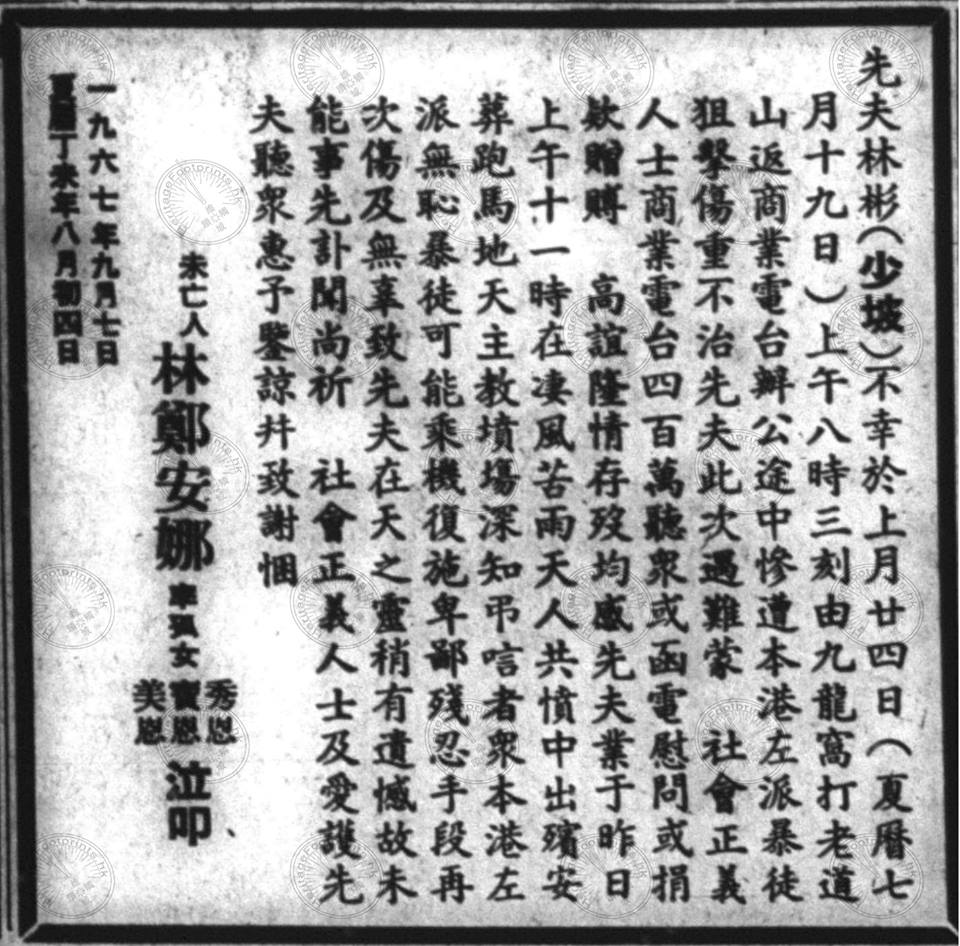 先夫林彬（少坡）不幸於上月廿四日（夏曆七
月十九日）上午八時三刻由九龍窩打老道
山返商業電台辦公途中慘遭本港左派暴徒
狙擊傷重不治先夫此次遇難蒙　社會正義
人士商業電台四百萬聽衆或函電慰問或捐
欵贈賻　高誼隆情存歿均感先夫業于昨日
上午十一時在凄風苦雨天人共憤中出殯安
葬跑馬地天主教墳塲深知弔唁者衆本港左
派無恥暴徒可能乘機復施卑鄙殘忍手段再
次傷及無辜致先夫在天之靈稍有遺憾故未
能事先訃聞尚祈　社會正義人士及愛護先
夫聽衆惠予鑒諒幷致謝悃
未亡人林鄭安娜率孤女
秀恩
寶恩
美恩
泣叩、
一九六七年九月七日
夏曆丁未年八月初四日
HeritageFootprints.hk